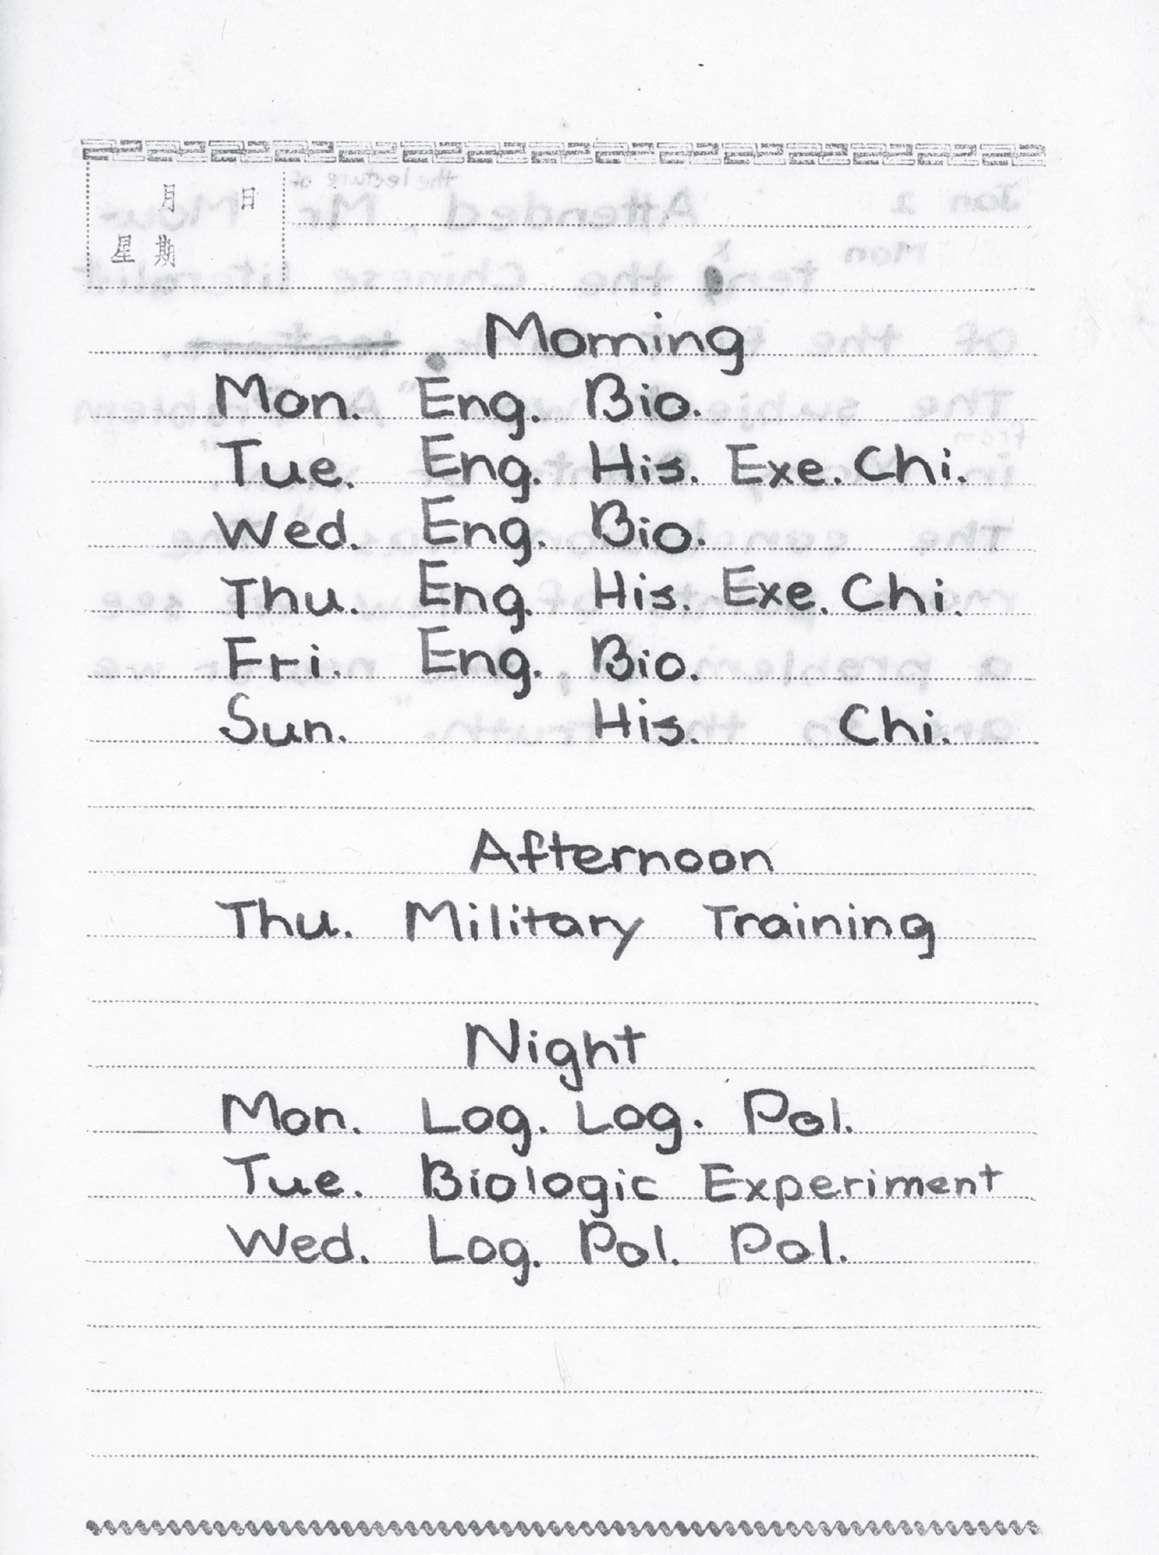 月 日
星 期
Morning
Mon. Eng. Bio.
Tue. Eng. His. Exe. Chi.
Wed. Eng. Bio.
Thu. Eng. His. Exe. Chi.
Fri. Eng. Bio.
Sun. His. Chi.
Afternoon
Thu. Military Training
Night
Mon. Log. Log. Pol.
Tue. Biologic Experiment
Wed. Log. Pol. Pol.